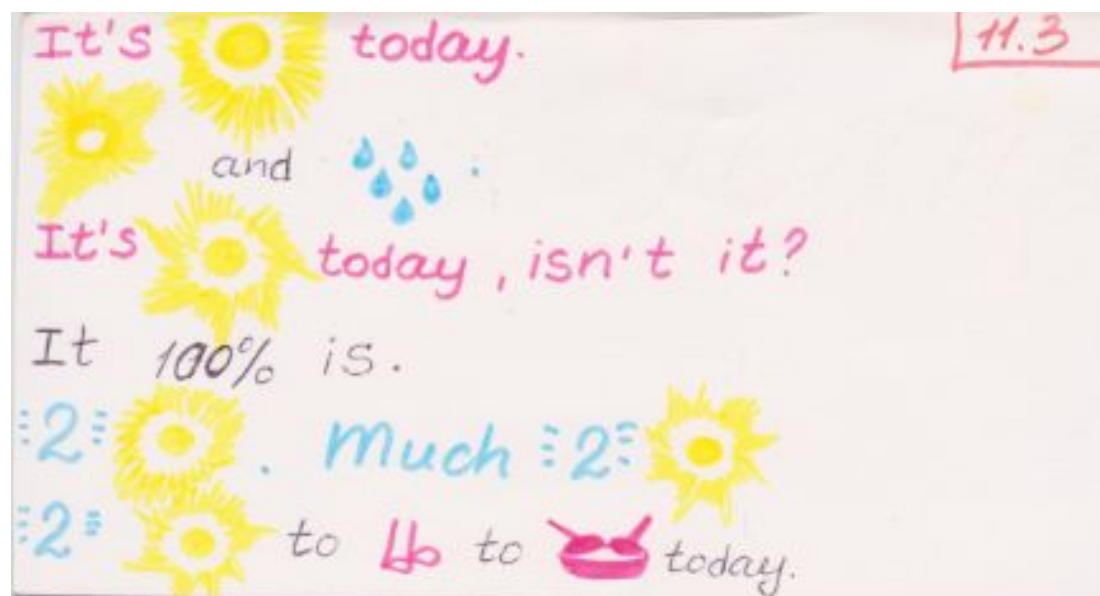 It's today. 11.3
and .
It's today, isn't it?
It 100% is.
2 . Much 2
2 to to today.